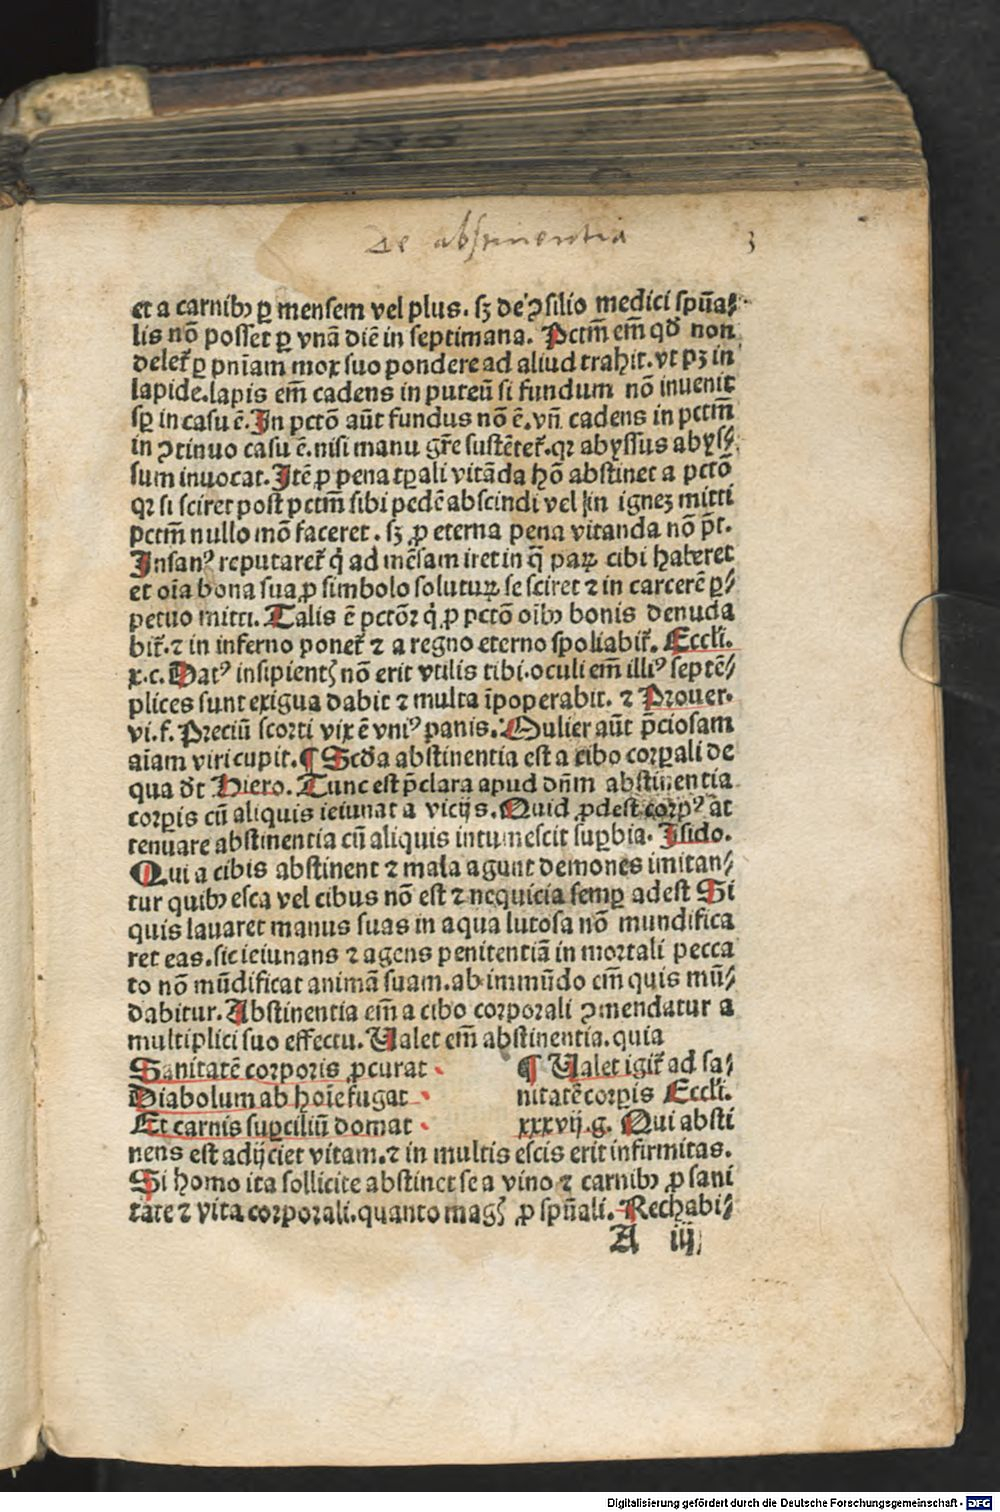 De abstinentia 3
et a carnibꝰ ꝑ mensem vel plus. sꝫ de ꝯsilio medici spũa⸗
lis nõ posset ꝑ vnã diẽ in septimana. Pctm̃ em̃ qđ non
delet᷑ ꝑ pñiam mox suo pondere ad aliud trahit. vt pꝫ in
lapide. lapis em̃ cadens in puteũ si fundum nõ inuenit
sꝑ in casu ẽ. In pctõ aũt fundus nõ ẽ. vñ cadens in pctm̃
in ꝯtinuo casu ẽ. nisi manu gr̃e sustẽtet᷑. qꝛ abyssus abys⸗
sum inuocat. Itẽ ꝓ pena tꝑali vitãda hõ abstinet a pctõ
qꝛ si sciret post pctm̃ sibi pedẽ abscindi vel in igneꝫ mitti
pctm̃ nullo mõ faceret. sꝫ ꝓ eterna pena vitanda nõ p̃t.
Insanꝰ reputaret᷑ q̇ ad mẽsam iret in q̃ paꝝ cibi haberet
et oĩa bona sua ꝓ simbolo solutuꝝ se sciret ⁊ in carcerẽ ꝑ⸗
petuo mitti. Talis ẽ pctõꝛ q̇ ꝓ pctõ oĩbꝰ bonis denuda
bit᷑. ⁊ in inferno ponet᷑ ⁊ a regno eterno spoliabit᷑. Eccli᷑.
x. c. Datꝰ insipientꝭ nõ erit vtilis tibi. oculi em̃ illiꝰ septẽ⸗
plices sunt exigua dabit ⁊ multa ĩpoperabit. ⁊ Prouer.
vi. f. Preciũ scorti vix ẽ vniꝰ panis. Mulier aũt p̃ciosam
aĩam viri cupit. ¶ Scđa abstinentia est a cibo corꝑali de
qua đt Hiero. Tunc est p̃clara apud dñm abstinentia
corꝑis cũ aliquis ieiunat a vicijs. Quid ꝓdest corpꝰ at
tenuare abstinentia cũ aliquis intumescit suꝑbia. Isido.
Qui a cibis abstinent ⁊ mala agunt demones imitan⸗
tur quibꝰ esca vel cibus nõ est ⁊ nequicia semꝑ adest Si
quis lauaret manus suas in aqua lutosa nõ mundifica
ret eas. sic ieiunans ⁊ agens penitentiã in mortali pecca
to nõ mũdificat animã suam. ab immũdo em̃ quis mũ⸗
dabitur. Abstinentia em̃ a cibo corporali ꝯmendatur a
multiplici suo effectu. Ualet em̃ abstinentia. quia
Sanitatẽ corporis ꝓcurat
Diabolum ab hoĩe fugat
Et carnis suꝑciliũ domat
¶ Ualet igit᷑ ad sa⸗
nitatẽ corꝑis Eccli᷑.
xxxvij. g. Qui absti
nens est adijciet vitam. ⁊ in multis escis erit infirmitas.
Si homo ita sollicite abstinet se a vino ⁊ carnibꝰ ꝓ sani
tate ⁊ vita corporali. quanto magꝭ ꝓ spũali. Rechabi⸗
A iij
Digitalisierung gefördert durch die Deutsche Forschungsgemeinschaft - DFG